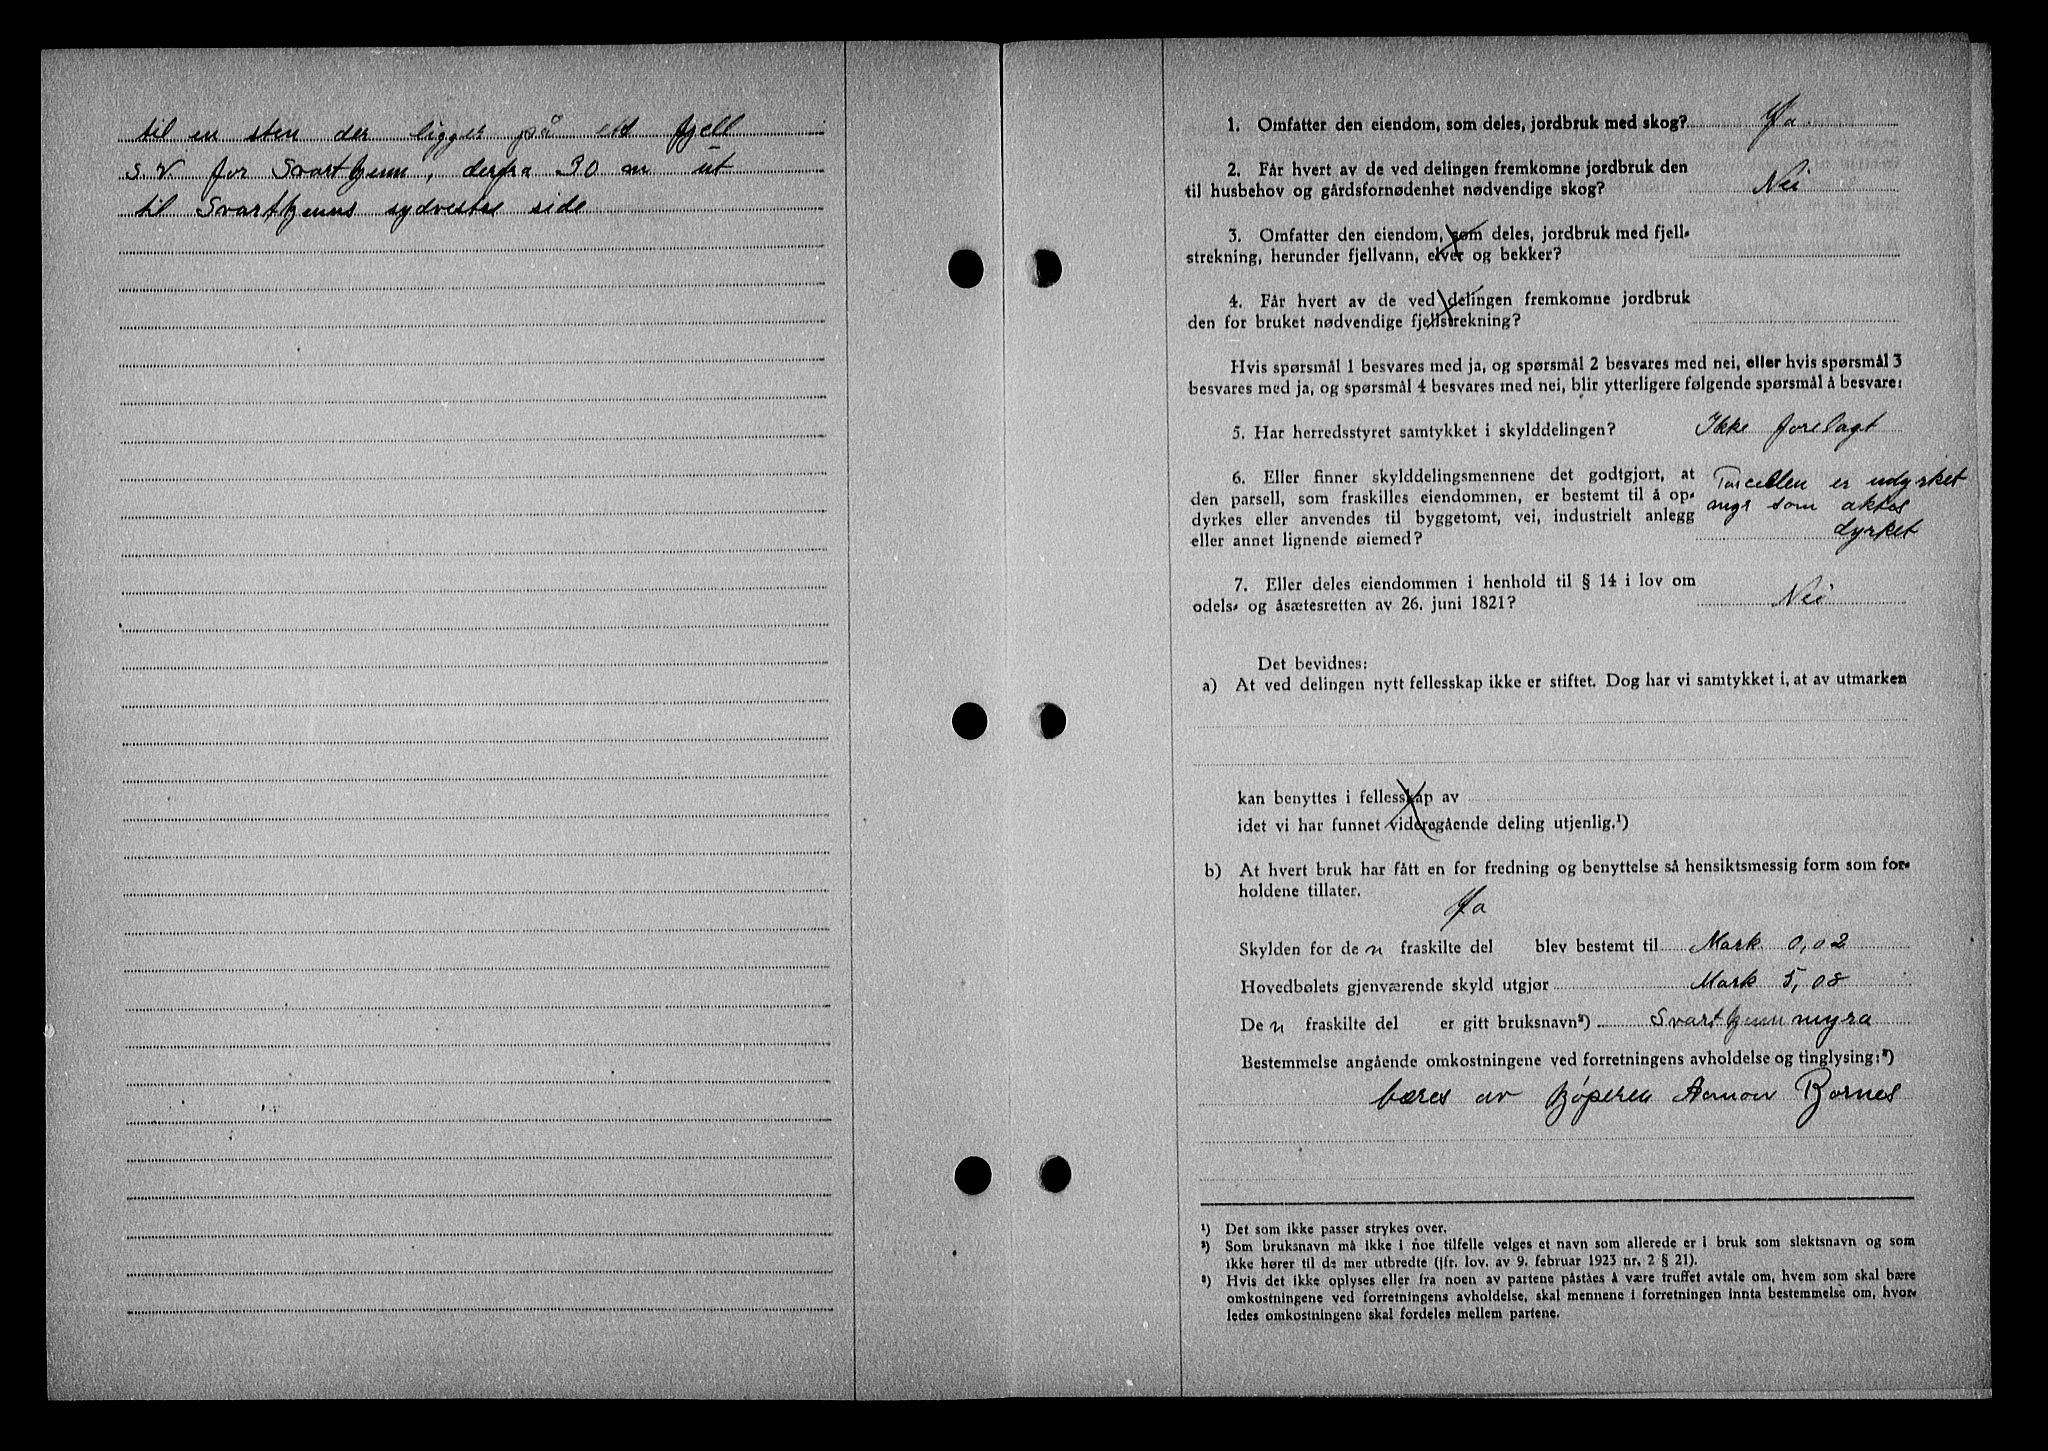 til en sten der ligger på et fjell
S.V. for Svarttjenn, derfra 30 m ut
til Svarttjenns sydvestre side
1. Omfatter den eiendom, som deles, jordbruk med skog? Ja
2. Får hvert av de ved delingen fremkomne jordbruk den
til husbehov og gårdsfornødenhet nødvendige skog? Nei
3. Omfatter den eiendom, som deles, jordbruk med fjell-
strekning, herunder fjellvann, elver og bekker?
4. Får hvert av de ved delingen fremkomne jordbruk
den for bruket nødvendige fjellstrekning?
Hvis spørsmål 1 besvares med ja, og spørsmål 2 besvares med nei, eller hvis spørsmål 3
besvares med ja, og spørsmål 4 besvares med nei, blir ytterligere følgende spørsmål å besvare:
5. Har herredsstyret samtykket i skylddelingen? Ikke forelagt
6. Eller finner skylddelingsmennene det godtgjort, at
den parsell, som fraskilles eiendommen, er bestemt til å op-
dyrkes eller anvendes til byggetomt, vei, industrielt anlegg
eller annet lignende øiemed?
Parcellen er udyrket
myr som aktes
dyrket
7. Eller deles eiendommen i henhold til § 14 i lov om
odels- og åsætesretten av 26. juni 1821? Nei
Det bevidnes:
a) At ved delingen nytt fellesskap ikke er stiftet. Dog har vi samtykket i, at av utmarken
kan benyttes i fellesskap av
idet vi har funnet videregående deling utjenlig.¹)
b) At hvert bruk har fått en for fredning og benyttelse så hensiktsmessig form som for-
holdene tillater.
Ja
Skylden for den fraskilte del blev bestemt til Mark 0,02
Hovedbølets gjenværende skyld utgjør Mark 5,08
Den fraskilte del er gitt bruksnavn²) Svarttjennmyra
Bestemmelse angående omkostningene ved forretningens avholdelse og tinglysing:³)
bæres av kjøperen Bornes
¹) Det som ikke passer strykes over.
²) Som bruksnavn må ikke i noe tilfelle velges et navn som allerede er i bruk som slektsnavn og som
ikke hører til de mer utbredte (jfr. lov. av 9. februar 1923 nr. 2 § 21).
³) Hvis det ikke oplyses eller fra noen av partene påståes å være truffet avtale om, hvem som skal bære
omkostningene ved forretningens avholdelse, skal mennene i forretningen innta bestemmelse om, hvor-
ledes omkostningene skal fordeles mellem partene.